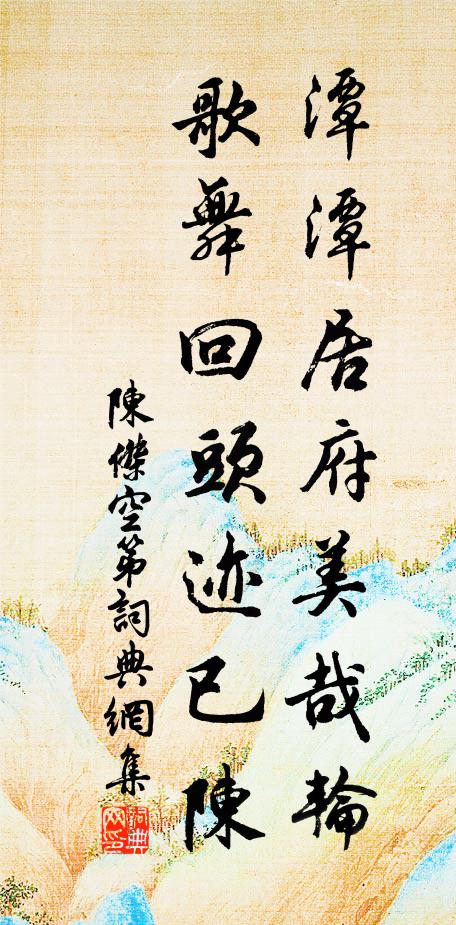 潭潭居府美哉輪
歌舞回頭迹已陳
陳傑空第詞典網集
詞典網印